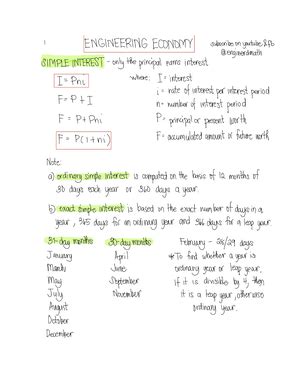 1
ENGINEERING ECONOMY
subscribe on youtube & fb
@enginerdmath
SIMPLE INTEREST - only the principal earns interest
I = Pni
where: I = interest
i = rate of interest per interest period
F = P + I
n = number of interest period
F = P + Pni
P = principal or present worth
F = P(1+ni)
F = accumulated amount or future worth
Note:
a) ordinary simple interest is computed on the basis of 12 months of
30 days each year or 360 days a year.
b) exact simple interest is based on the exact number of days in a
year, 365 days for an ordinary year and 366 days for a leap year
31-day months
30-day months
February - 28/29 days
January
April
* To find whether a year is
March
June
ordinary year or leap year,
May
September
if it is divisible by 4, then
July
November
it is a leap year, otherwise
August
ordinary year.
October
December